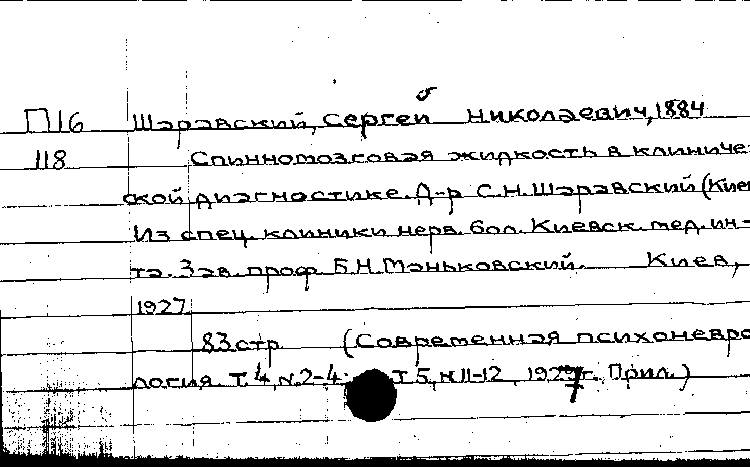 П16 Шаравский, Сергей Николаевич, 1884
118 Спинномозговая жидкость в клиниче-
ской диагностике. Д-р С.Н. Шаравский (Киев
Из спец. клиники нерв. бол. Киевск. мед. ин-
та. Зав. проф. Б.Н. Маньковский. Киев,
1927
83 стр. (Современная психоневро
логия. Т. 4, N. 2-4; Т 5, N 11-12, 1927 г. Прил.)